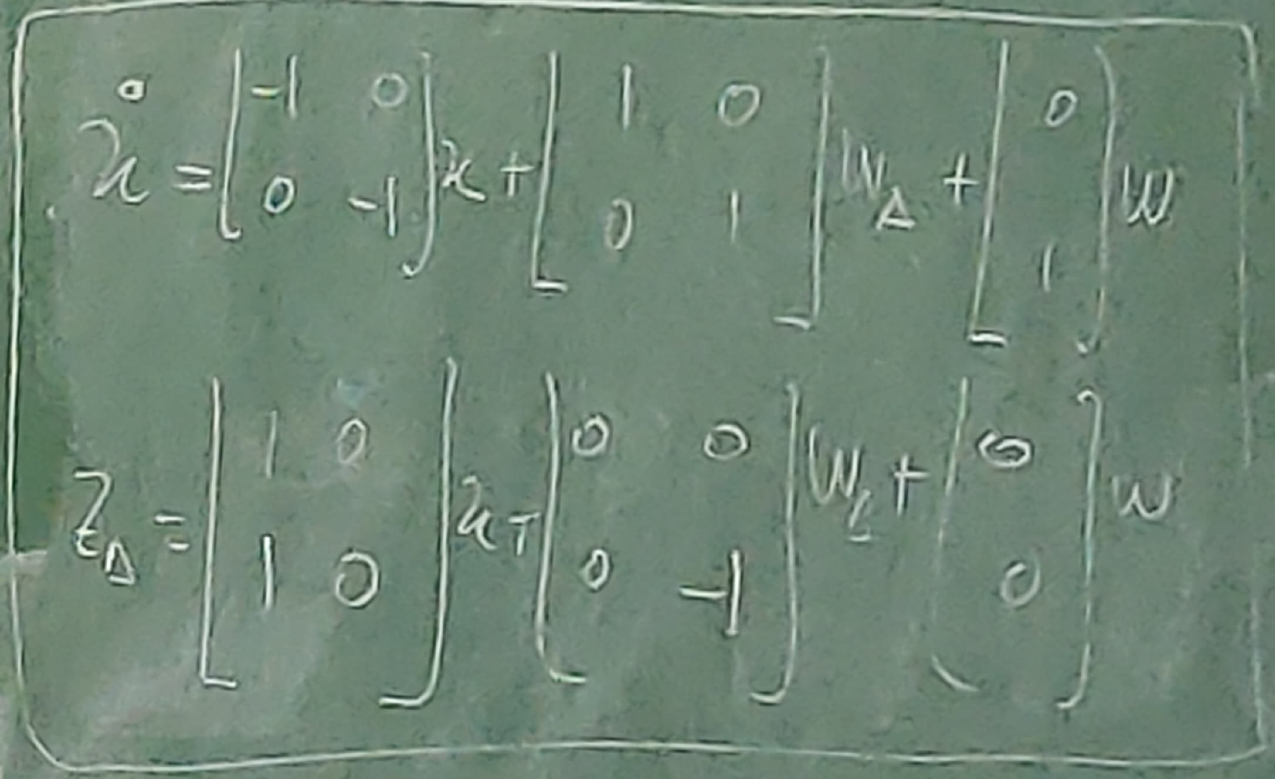 ẋ = [-1 0; 0 -1] x + [1 0; 0 1] w_Δ + [0; 1] w
z_Δ = [1 0; 1 0] x + [0 0; 0 -1] w_Δ + [0; 0] w